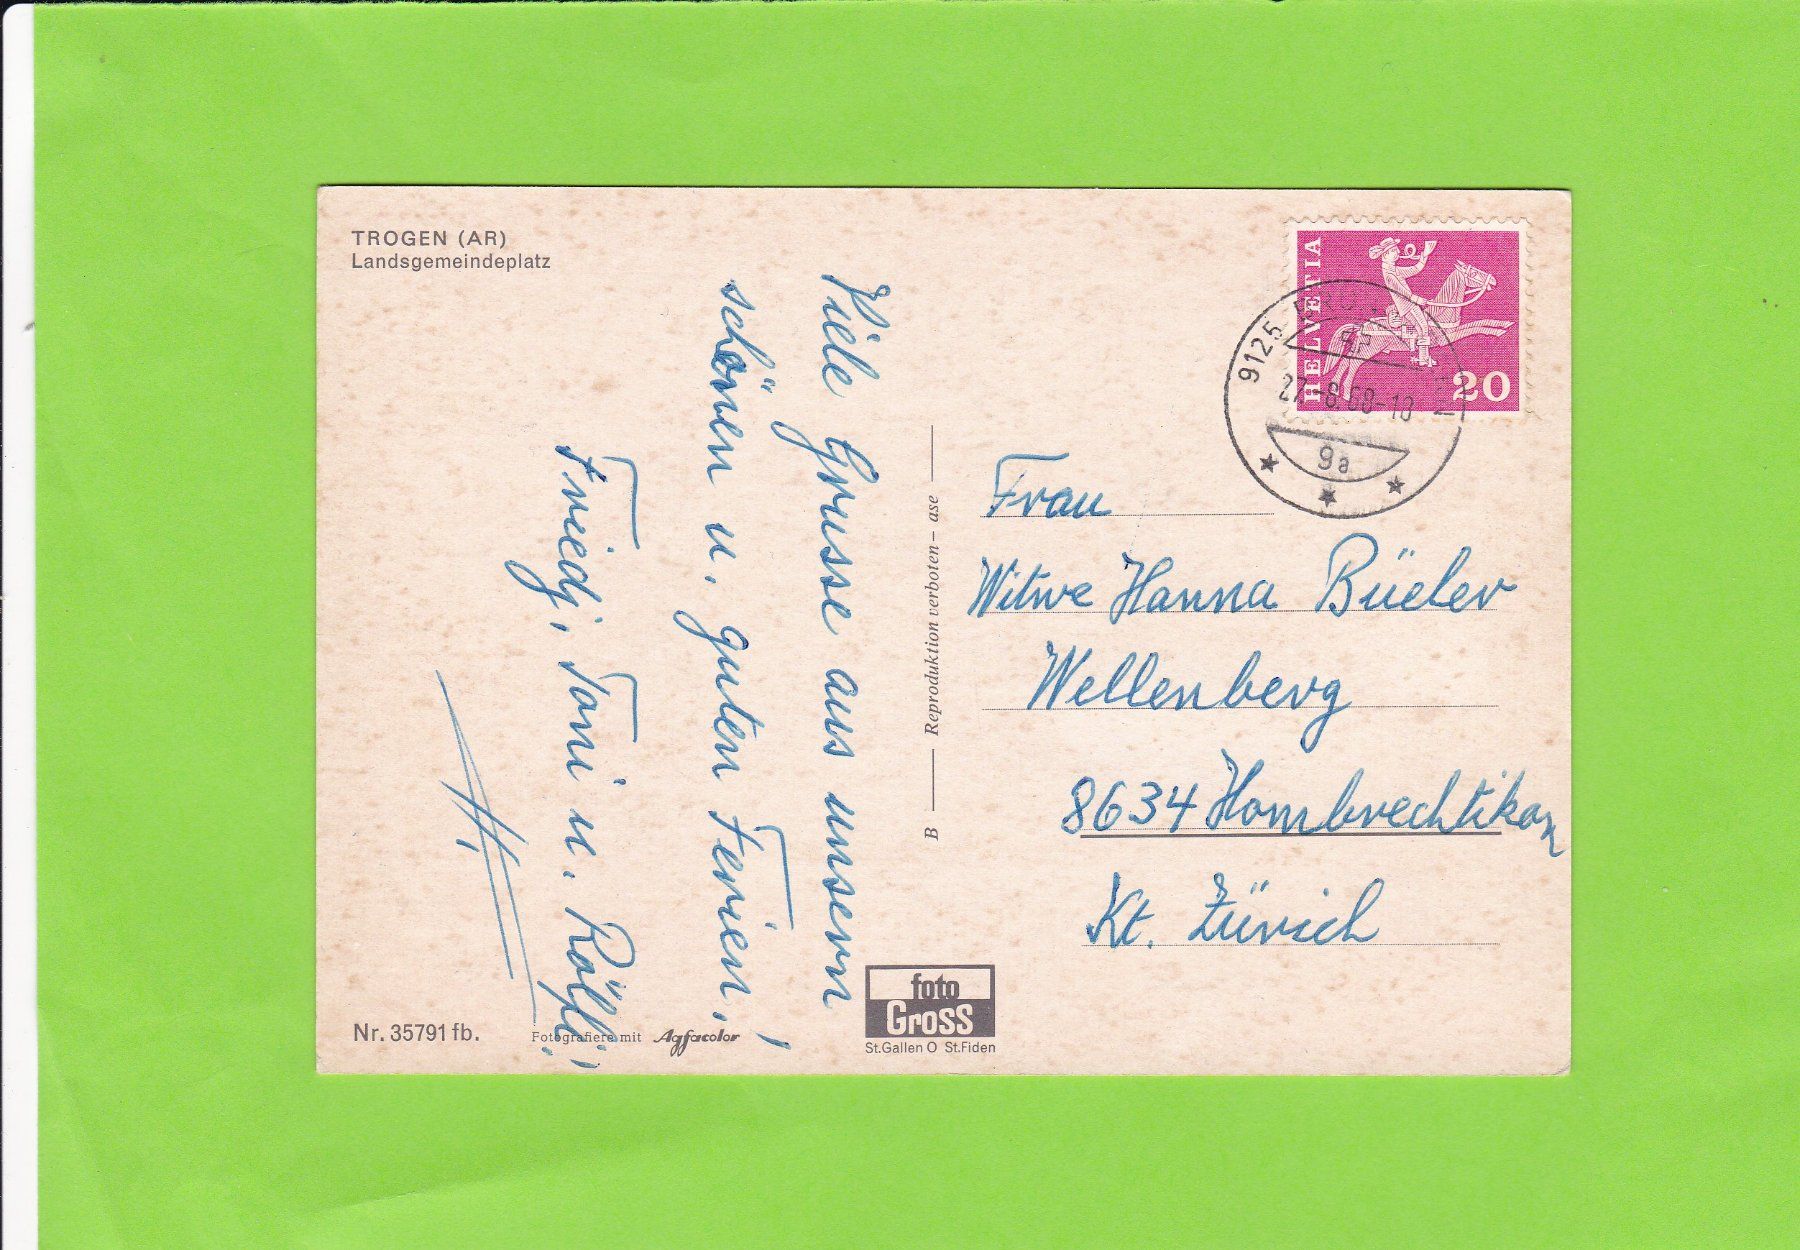 TROGEN (AR)
Landsgemeindeplatz
Viele Grüsse aus unsern
schönen u. guten Ferien,
Friedj, Toni u. Rölfli!
B — Reproduktion verboten – ase —
HELVETIA
20
9125
27.-8.68-18
9a
Frau
Witwe Hanna Büeler
Wellenberg
8634 Hombrechtikon
Kt. Zürich
Nr. 35791 fb.
Fotografiere mit Agfacolor
foto
Gross
St.Gallen O St.Fiden